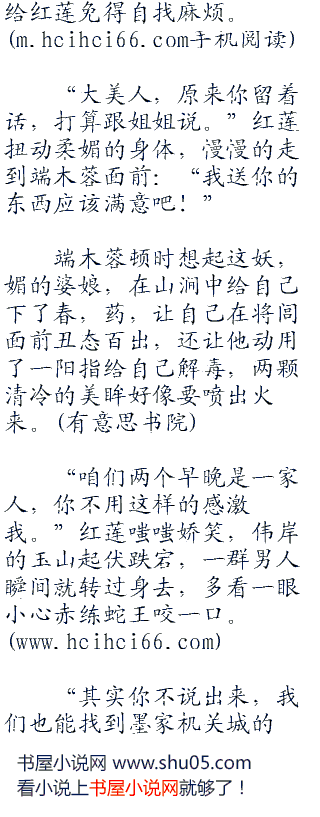 给红莲免得自找麻烦。
(m.hcihci66.com手机阅读)
“大美人，原来你留着
话，打算跟姐姐说。”红莲
扭动柔媚的身体，慢慢的走
到端木蓉面前：“我送你的
东西应该满意吧！”
端木蓉顿时想起这妖，
媚的婆娘，在山涧中给自己
下了春，药，让自己在将闾
面前丑态百出，还让他动用
了一阳指给自己解毒，两颗
清冷的美眸好像要喷出火
来。(有意思书院)
“咱们两个早晚是一家
人，你不用这样的感激
我。”红莲嗤嗤娇笑，伟岸
的玉山起伏跌宕，一群男人
瞬间就转过身去，多看一眼
小心赤练蛇王咬一口。
(www.hcihci66.com)
“其实你不说出来，我
们也能找到墨家机关城的
书屋小说网 www.shu05.com
看小说上书屋小说网就够了！